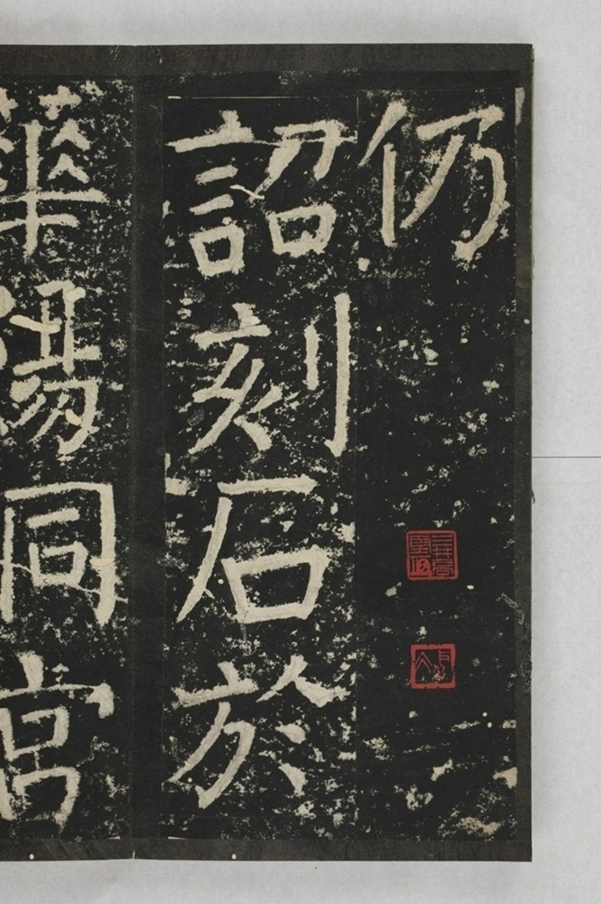 仍
詔刻石於
華陽洞宮